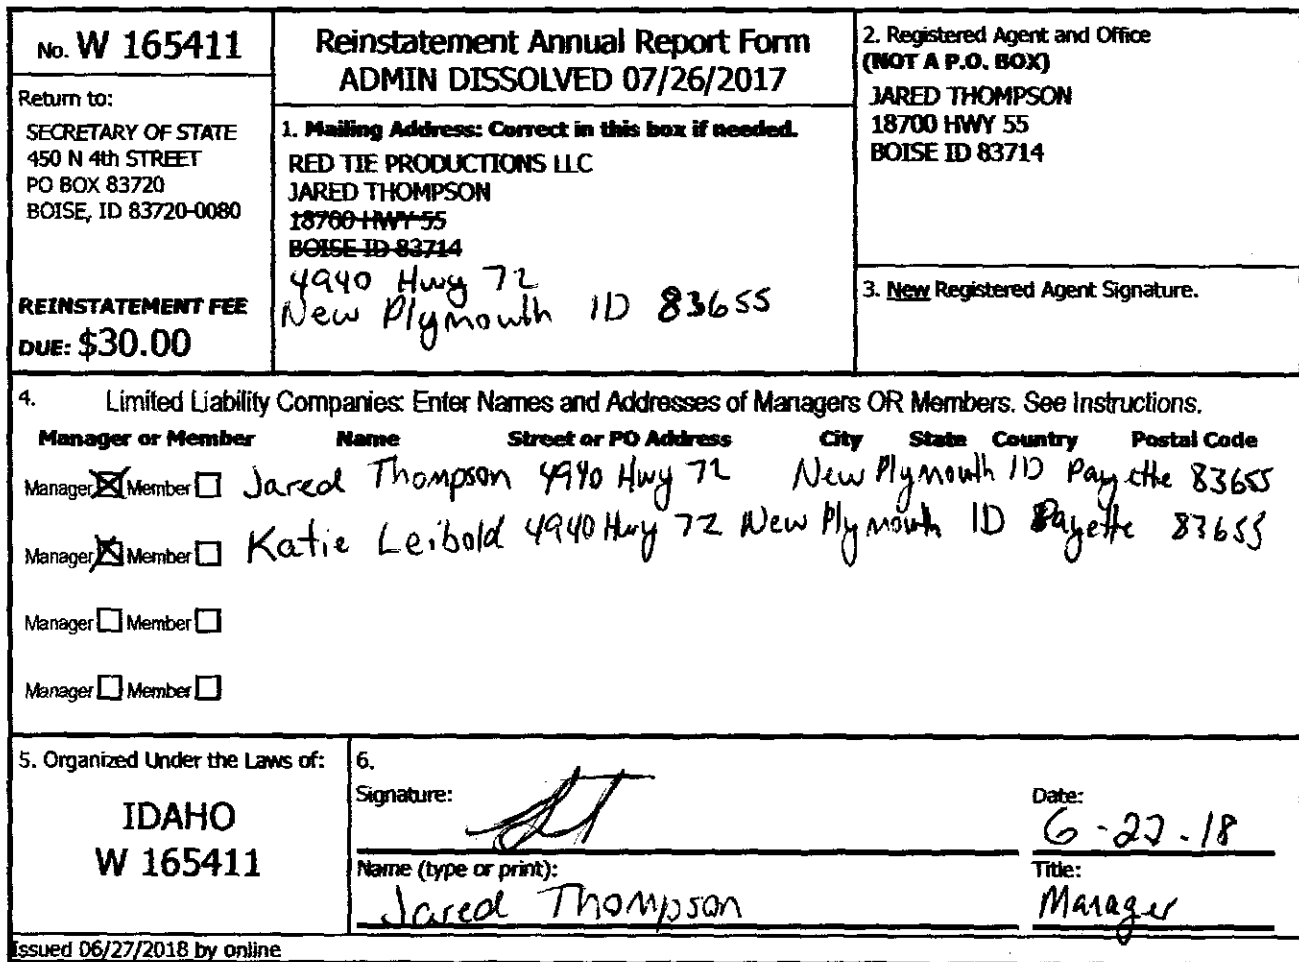 No. W 165411
Return to:
SECRETARY OF STATE
450 N 4th STREET
PO BOX 83720
BOISE, ID 83720-0080
REINSTATEMENT FEE
DUE: $30.00
Reinstatement Annual Report Form
ADMIN DISSOLVED 07/26/2017
1. Mailing Address: Correct in this box if needed.
RED TIE PRODUCTIONS LLC
JARED THOMPSON
18700 HWY 55
BOISE ID 83714
4940 Hwy 72
New Plymouth ID 83655
2. Registered Agent and Office
(NOT A P.O. BOX)
JARED THOMPSON
18700 HWY 55
BOISE ID 83714
3. New Registered Agent Signature.
4. Limited Liability Companies: Enter Names and Addresses of Managers OR Members. See Instructions.
Manager or Member Name Street or PO Address City State Country Postal Code
Manager Member Jared Thompson 4940 Hwy 72 New Plymouth ID Payette 83655
Manager Member Katie Leibold 4940 Hwy 72 New Plymouth ID Payette 83655
Manager Member
Manager Member
5. Organized Under the Laws of:
IDAHO
W 165411
6.
Signature:
Date:
Name (type or print):
Jared Thompson
Title:
Manager
Issued 06/27/2018 by online